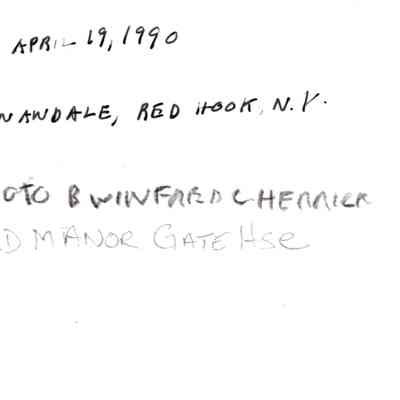 APRIL 19, 1990
NANDALE, RED HOOK, N.Y.
OTO B WINFRED C HERRICK
D MANOR GATE HSE